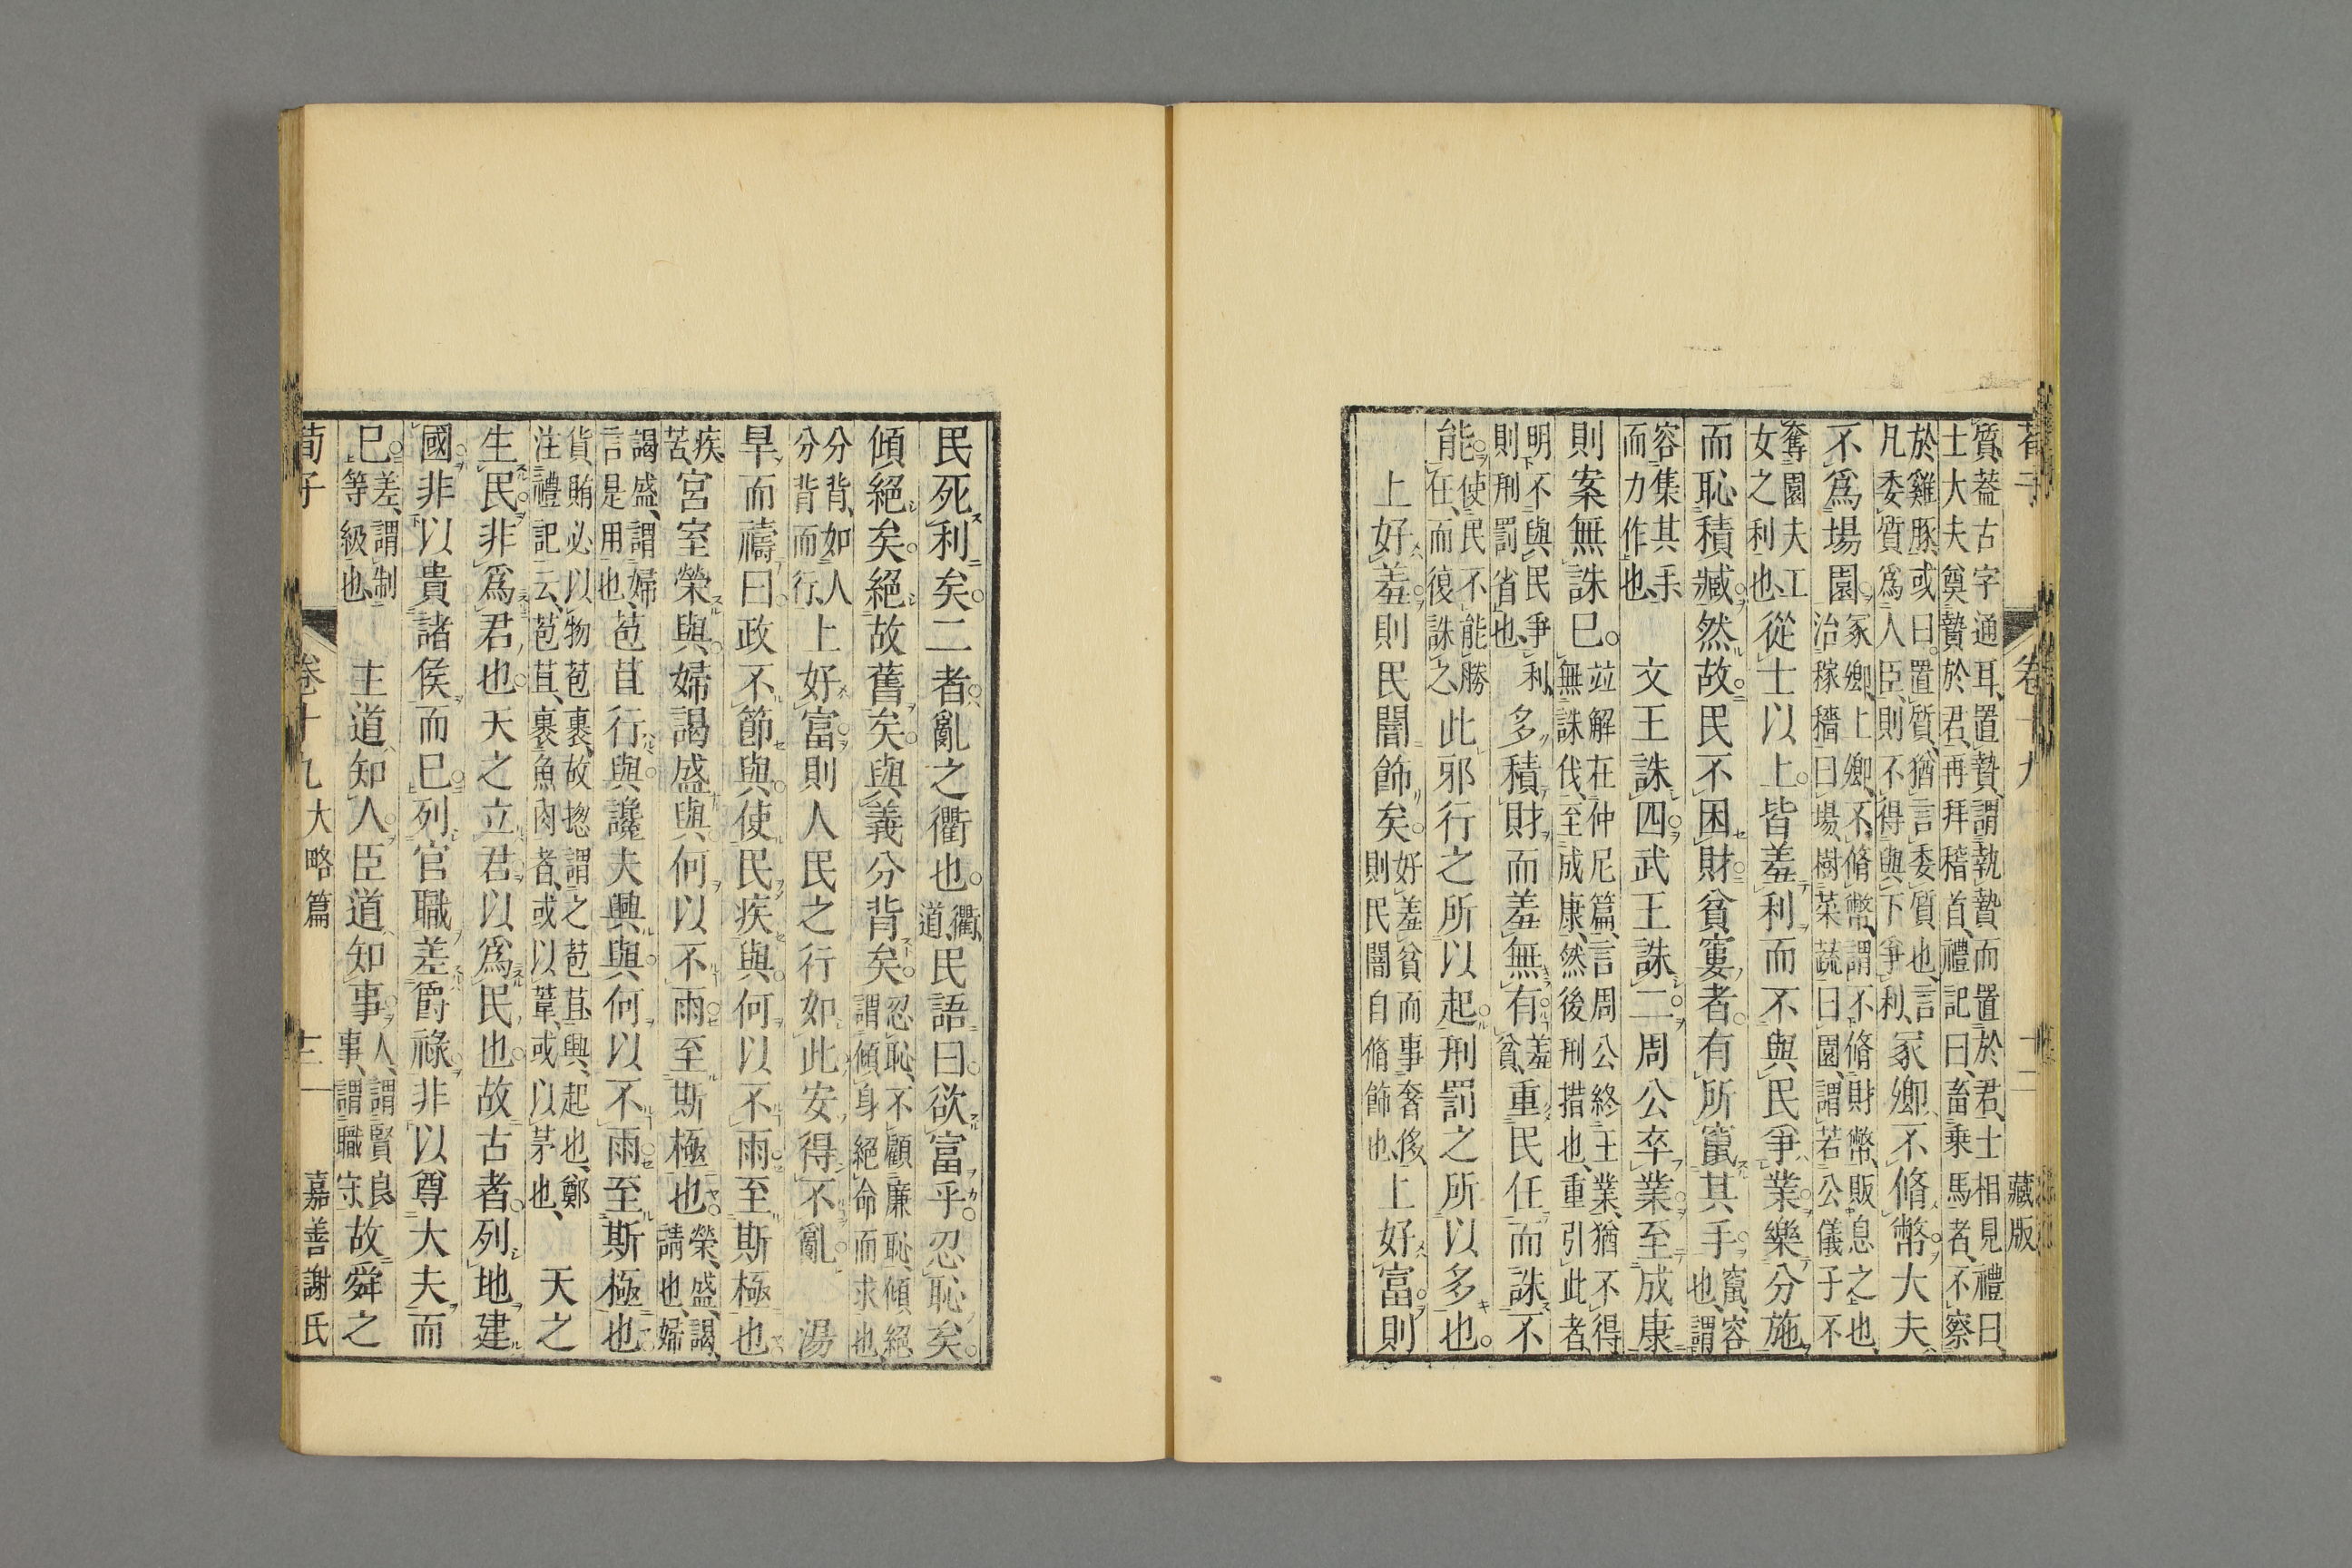 質、蓋古字通耳、置贄、謂執贄而置於君、士相見禮曰、
士大夫奠贄於君、再拜稽首、禮記曰、畜乗馬者、不察
於雞豚、或曰、置質、猶言委質也、言
凡委質爲人臣、則不得與下爭利、冢卿不脩幣大夫
不爲場園冢卿、上卿、不脩幣、謂不脩財幣、販息之也、
治稼穡曰場、樹菜蔬曰園、謂若公儀子不
奪園夫工
女之利也、從士以上皆羞利而不與民爭業樂分施
而恥積臧然故民不困財貧窶者有所竄其手竄、容
也、謂
容集其手
而力作也、文王誅四武王誅二周公卒業至成康
則案無誅已竝解在仲尼篇、言周公終王業、猶不得
無誅伐、至成康、然後刑措也、重引此者、
明不與民爭利、
則刑罰省也、多積財而羞無有羞
貧、重民任而誅不
能使民不能勝
任、而復誅之、此邪行之所以起刑罰之所以多也
上好羞則民闇飾矣好羞貧而事奢侈、
則民闇自脩飾也、上好富則
荀子 卷十九 十二 藏版
民死利矣二者亂之衢也衢、
道、民語曰欲富乎忍恥矣
傾絕矣絕故舊矣與義分背矣忍恥、不顧廉恥、傾絕、
謂傾身絕命而求也、
分背、如人
分背而行、上好富則人民之行如此安得不亂 湯
旱而禱曰政不節與使民疾與何以不雨至斯極也
疾、
苦、宮室榮與婦謁盛與何以不雨至斯極也榮、盛、謁、
請也、婦
謁盛、謂婦
言是用也、苞苴行與讒夫興與何以不雨至斯極也
貨賄必以物苞裹、故揔謂之苞苴、興、起也、鄭
注禮記云、苞苴、裹魚肉者、或以葦、或以茅也、 天之
生民非爲君也天之立君以爲民也故古者列地建
國非以貴諸侯而已列官職差爵祿非以尊大夫而
已差、謂制
等級也、 主道知人臣道知事人、謂賢良、
事、謂職守、故舜之
荀子 卷十九 大略篇 十三 嘉善謝氏